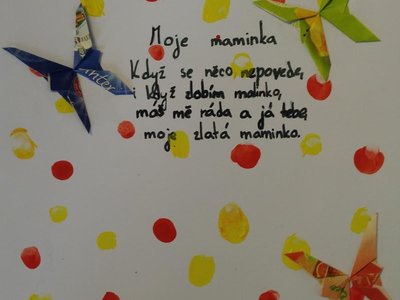 Moje maminka
Když se něco nepovede,
i když zlobím malinko,
máš mě ráda a já tebe,
moje zlatá maminko.